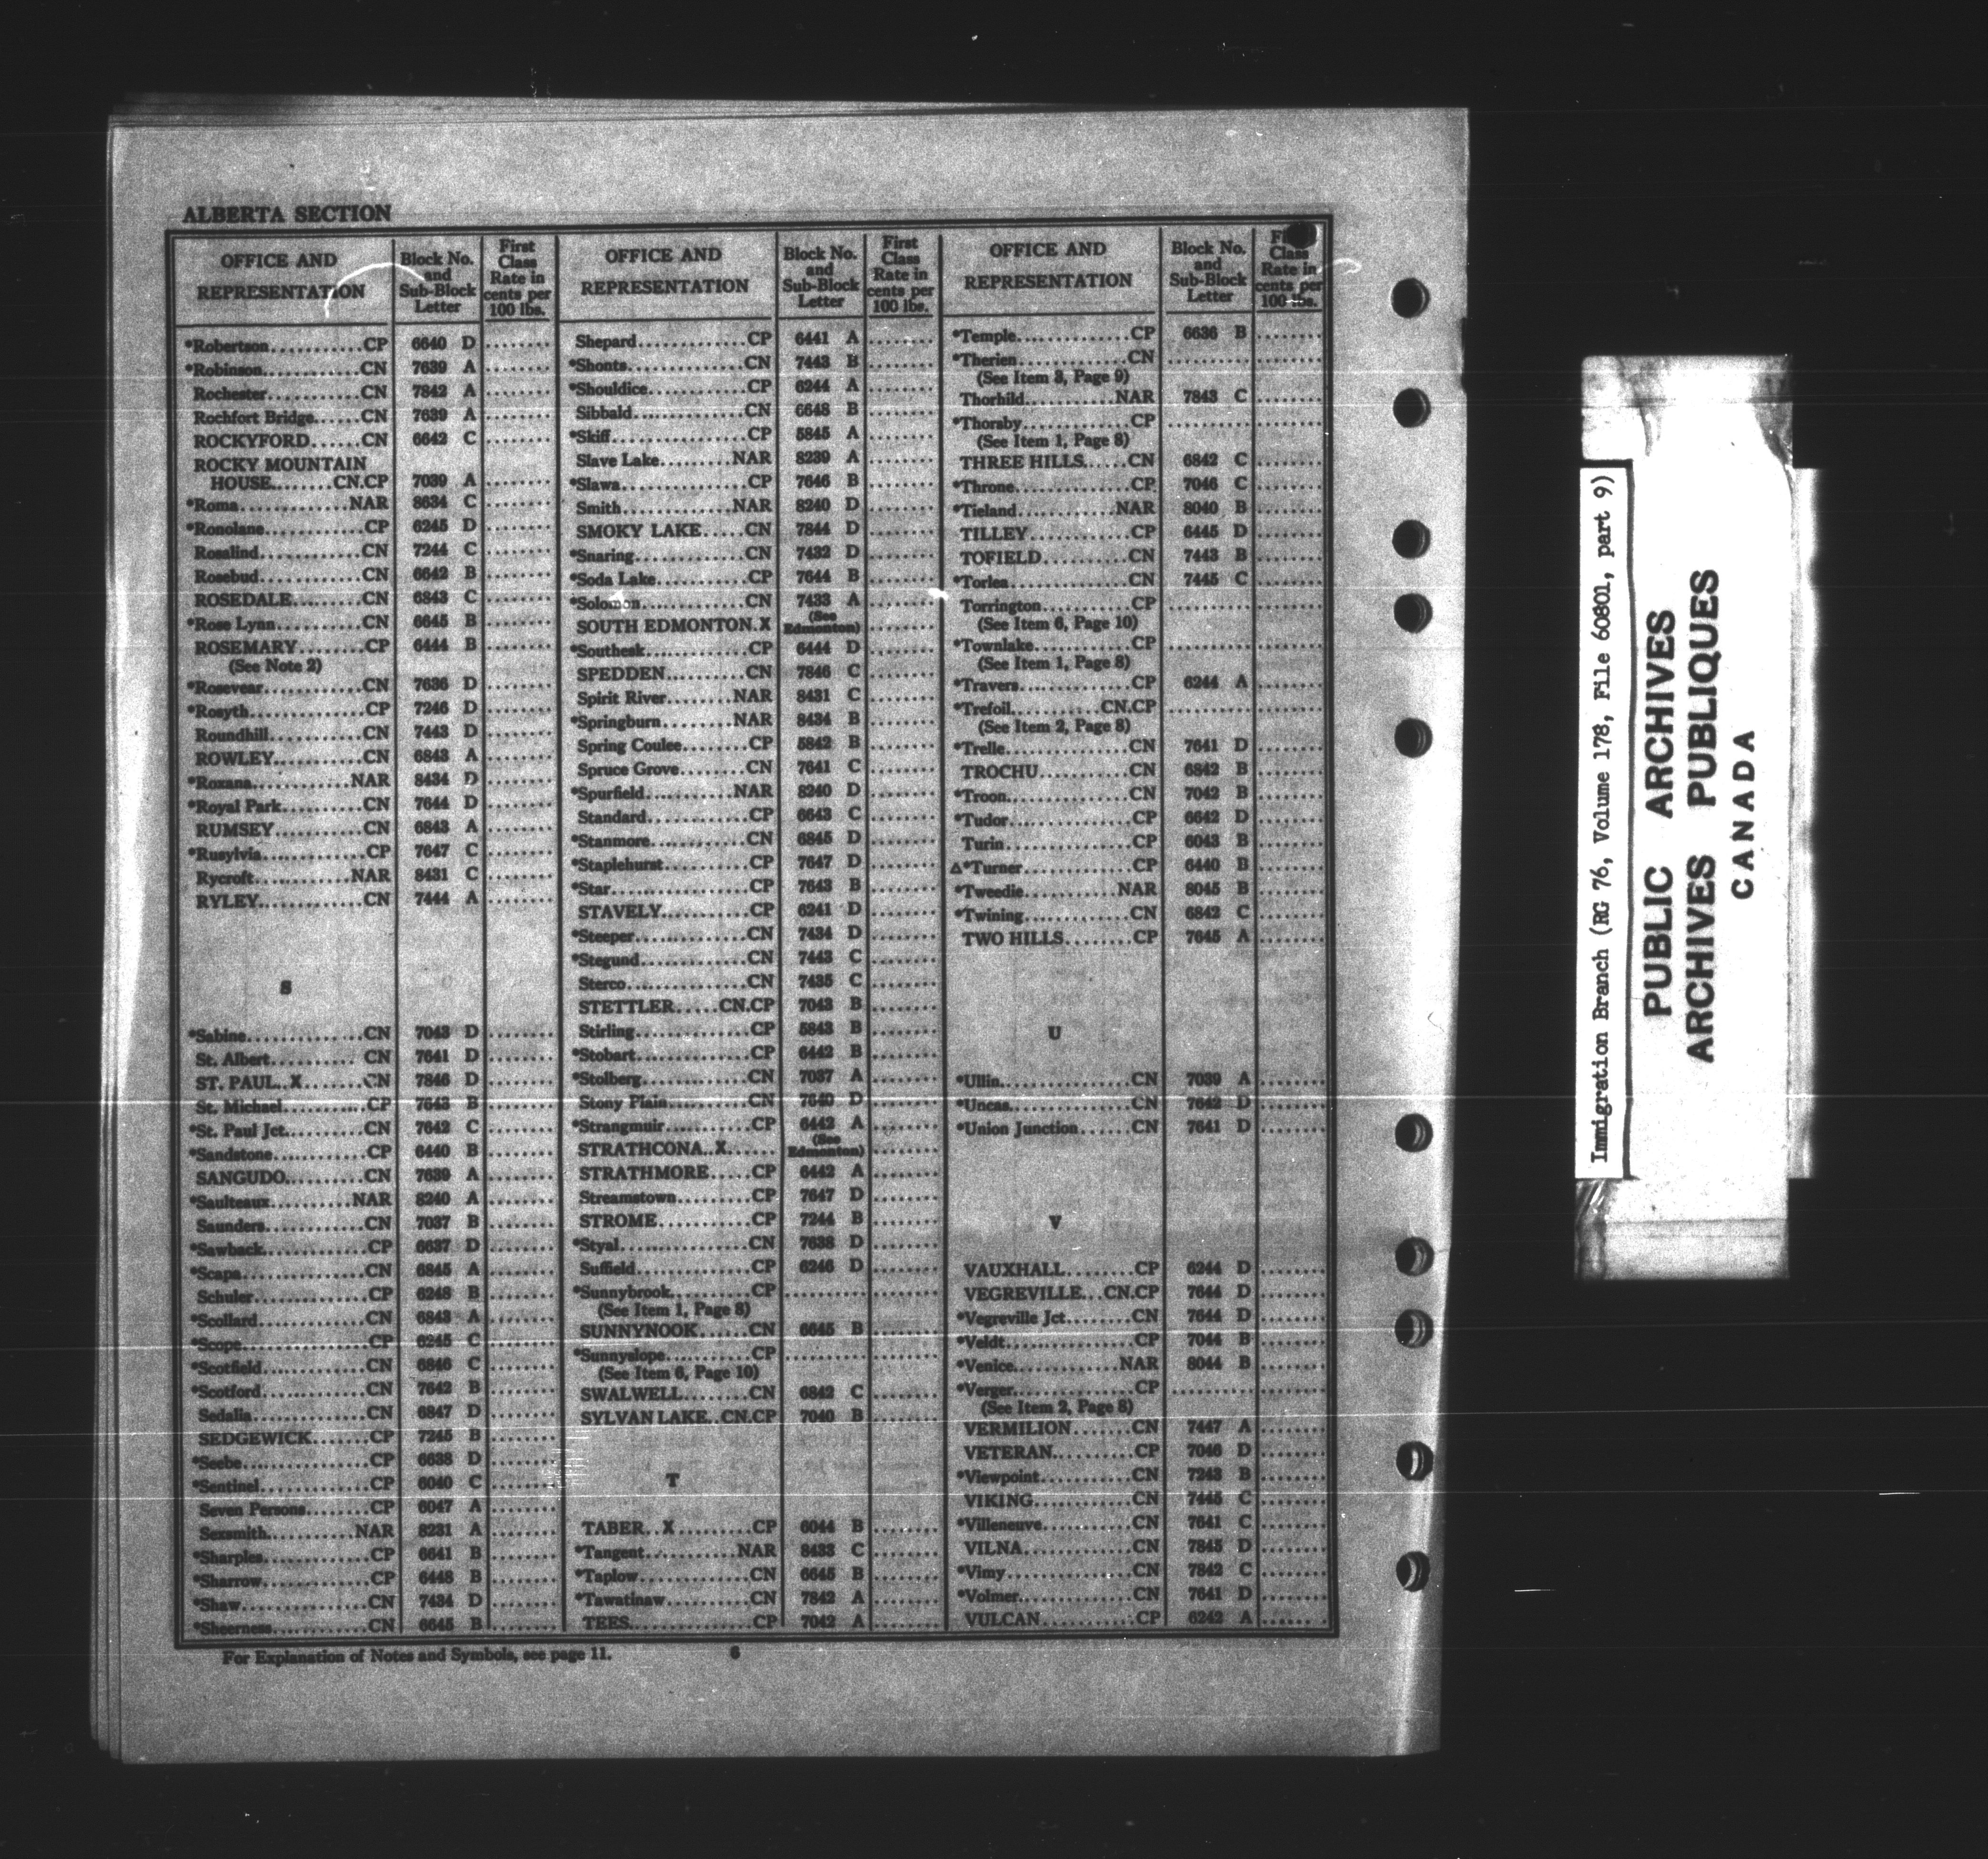 ALBERTA SECTION
OFFICE AND REPRESENTATION
Block No. and Sub-Block Letter
First Class Rate in cents per 100 lbs.
*Robertson............CP 6640 D ........
*Robinson............CN 7639 A ........
Rochester............CN 7842 A ........
Rochfort Bridge.....CN 7639 A ........
ROCKYFORD......CN 6642 C ........
ROCKY MOUNTAIN
HOUSE.......CN.CP 7039 A ........
*Roma..............NAR 8634 C ........
*Ronolane............CP 6245 D ........
Rosalind.............CN 7244 C ........
Rosebud.............CN 6642 B ........
ROSEDALE.........CN 6843 C ........
*Rose Lynn..........CN 6645 B ........
ROSEMARY........CP 6444 B ........
(See Note 2)
*Rosevear............CN 7636 D ........
*Rosyth..............CP 7246 D ........
Roundhill............CN 7443 D ........
ROWLEY...........CN 6843 A ........
*Roxana............NAR 8434 D ........
*Royal Park..........CN 7644 D ........
RUMSEY...........CN 6843 A ........
*Rusylvia.............CP 7647 C ........
Rycroft............NAR 8431 C ........
RYLEY.............CN 7444 A ........
S
*Sabine..............CN 7043 D ........
St. Albert...........CN 7641 D ........
ST. PAUL..X........CN 7846 D ........
St. Michael...........CP 7643 B ........
*St. Paul Jct..........CN 7642 C ........
*Sandstone...........CP 6440 B ........
SANGUDO..........CN 7639 A ........
*Saulteaux..........NAR 8240 A ........
Saunders............CN 7037 B ........
*Sawback............CP 6637 D ........
*Scapa...............CN 6845 A ........
Schuler..............CP 6248 B ........
*Scollard.............CN 6843 A ........
*Scope...............CP 6245 C ........
*Scotfield............CN 6846 C ........
*Scotford............CN 7642 B ........
Sedalia..............CN 6847 D ........
SEDGEWICK.......CP 7245 B ........
*Seebe...............CP 6638 D ........
*Sentinel.............CP 6040 C ........
Seven Persons........CP 6047 A ........
Sexsmith...........NAR 8231 A ........
*Sharples............CP 6641 B ........
*Sharrow............CP 6448 B ........
*Shaw...............CN 7434 D ........
*Sheerness...........CN 6645 B ........
OFFICE AND REPRESENTATION
Block No. and Sub-Block Letter
First Class Rate in cents per 100 lbs.
Shepard.............CP 6441 A ........
*Shonts..............CN 7443 B ........
*Shouldice...........CP 6244 A ........
Sibbald..............CN 6648 B ........
*Skiff................CP 5845 A ........
Slave Lake.........NAR 8239 A ........
*Slawa...............CP 7646 B ........
Smith..............NAR 8240 D ........
SMOKY LAKE.....CN 7844 D ........
*Snaring.............CN 7432 D ........
*Soda Lake..........CP 7644 B ........
*Solomon............CN 7433 A ........
SOUTH EDMONTON.X (See Edmonton) ........
*Southesk............CP 6444 D ........
SPEDDEN..........CN 7846 C ........
Spirit River........NAR 8431 C ........
*Springburn........NAR 8434 B ........
Spring Coulee........CP 5842 B ........
Spruce Grove........CN 7641 C ........
*Spurfield..........NAR 8240 D ........
Standard............CP 6643 C ........
*Stanmore...........CN 6845 D ........
*Staplehurst..........CP 7647 D ........
*Star.................CP 7643 B ........
STAVELY...........CP 6241 D ........
*Steeper.............CN 7434 D ........
*Stegund.............CN 7443 C ........
Sterco...............CN 7435 C ........
STETTLER.....CN.CP 7043 B ........
Stirling..............CP 5843 B ........
*Stobart.............CP 6442 B ........
*Stolberg............CN 7037 A ........
Stony Plain..........CN 7640 D ........
*Strangmuir..........CP 6442 A ........
STRATHCONA..X...... (See Edmonton) ........
STRATHMORE.....CP 6442 A ........
Streamstown.........CP 7647 D ........
STROME...........CP 7244 B ........
*Styal...............CN 7638 D ........
Suffield.............CP 6246 D ........
*Sunnybrook.........CP ........
(See Item 1, Page 8)
SUNNYNOOK......CN 6645 B ........
*Sunnyslope..........CP ........
(See Item 6, Page 10)
SWALWELL........CN 6842 C ........
SYLVAN LAKE..CN.CP 7040 B ........
T
TABER..X.........CP 6044 B ........
*Tangent...........NAR 8433 C ........
*Taplow.............CN 6645 B ........
*Tawatinaw..........CN 7842 A ........
TEES...............CP 7042 A ........
OFFICE AND REPRESENTATION
Block No. and Sub-Block Letter
Class Rate in cents per 100 lbs.
*Temple..............CP 6636 B ........
*Therien.............CN ........
(See Item 3, Page 9)
Thorhild...........NAR 7843 C ........
*Thorsby.............CP ........
(See Item 1, Page 8)
THREE HILLS.....CN 6842 C ........
*Throne..............CP 7046 C ........
*Tieland............NAR 8040 B ........
TILLEY............CP 6445 D ........
TOFIELD..........CN 7443 B ........
*Torlea..............CN 7445 C ........
Torrington...........CP ........
(See Item 6, Page 10)
*Townlake...........CP ........
(See Item 1, Page 8)
*Travers.............CP 6244 A ........
*Trefoil...........CN.CP ........
(See Item 2, Page 8)
*Trelle..............CN 7641 D ........
TROCHU...........CN 6842 B ........
*Troon...............CN 7042 B ........
*Tudor...............CP 6642 D ........
Turin...............CP 6043 B ........
△*Turner..............CP 6440 B ........
*Tweedie...........NAR 8045 B ........
*Twining.............CN 6842 C ........
TWO HILLS........CP 7645 A ........
U
*Ullin................CN 7039 A ........
*Uncas...............CN 7642 D ........
*Union Junction......CN 7641 D ........
V
VAUXHALL........CP 6244 D ........
VEGREVILLE...CN.CP 7644 D ........
*Vegreville Jct........CN 7644 D ........
*Veldt...............CP 7044 B ........
*Venice.............NAR 8044 B ........
*Verger..............CP ........
(See Item 2, Page 8)
VERMILION.......CN 7447 A ........
VETERAN..........CP 7046 D ........
*Viewpoint...........CN 7243 B ........
VIKING............CN 7445 C ........
*Villeneuve...........CN 7641 C ........
VILNA.............CN 7845 D ........
*Vimy...............CN 7842 C ........
*Volmer..............CN 7641 D ........
VULCAN...........CP 6242 A ........
For Explanation of Notes and Symbols, see page 11.
6
Immigration Branch (RG 76, Volume 178, File 60801, part 9)
PUBLIC ARCHIVES
ARCHIVES PUBLIQUES
CANADA